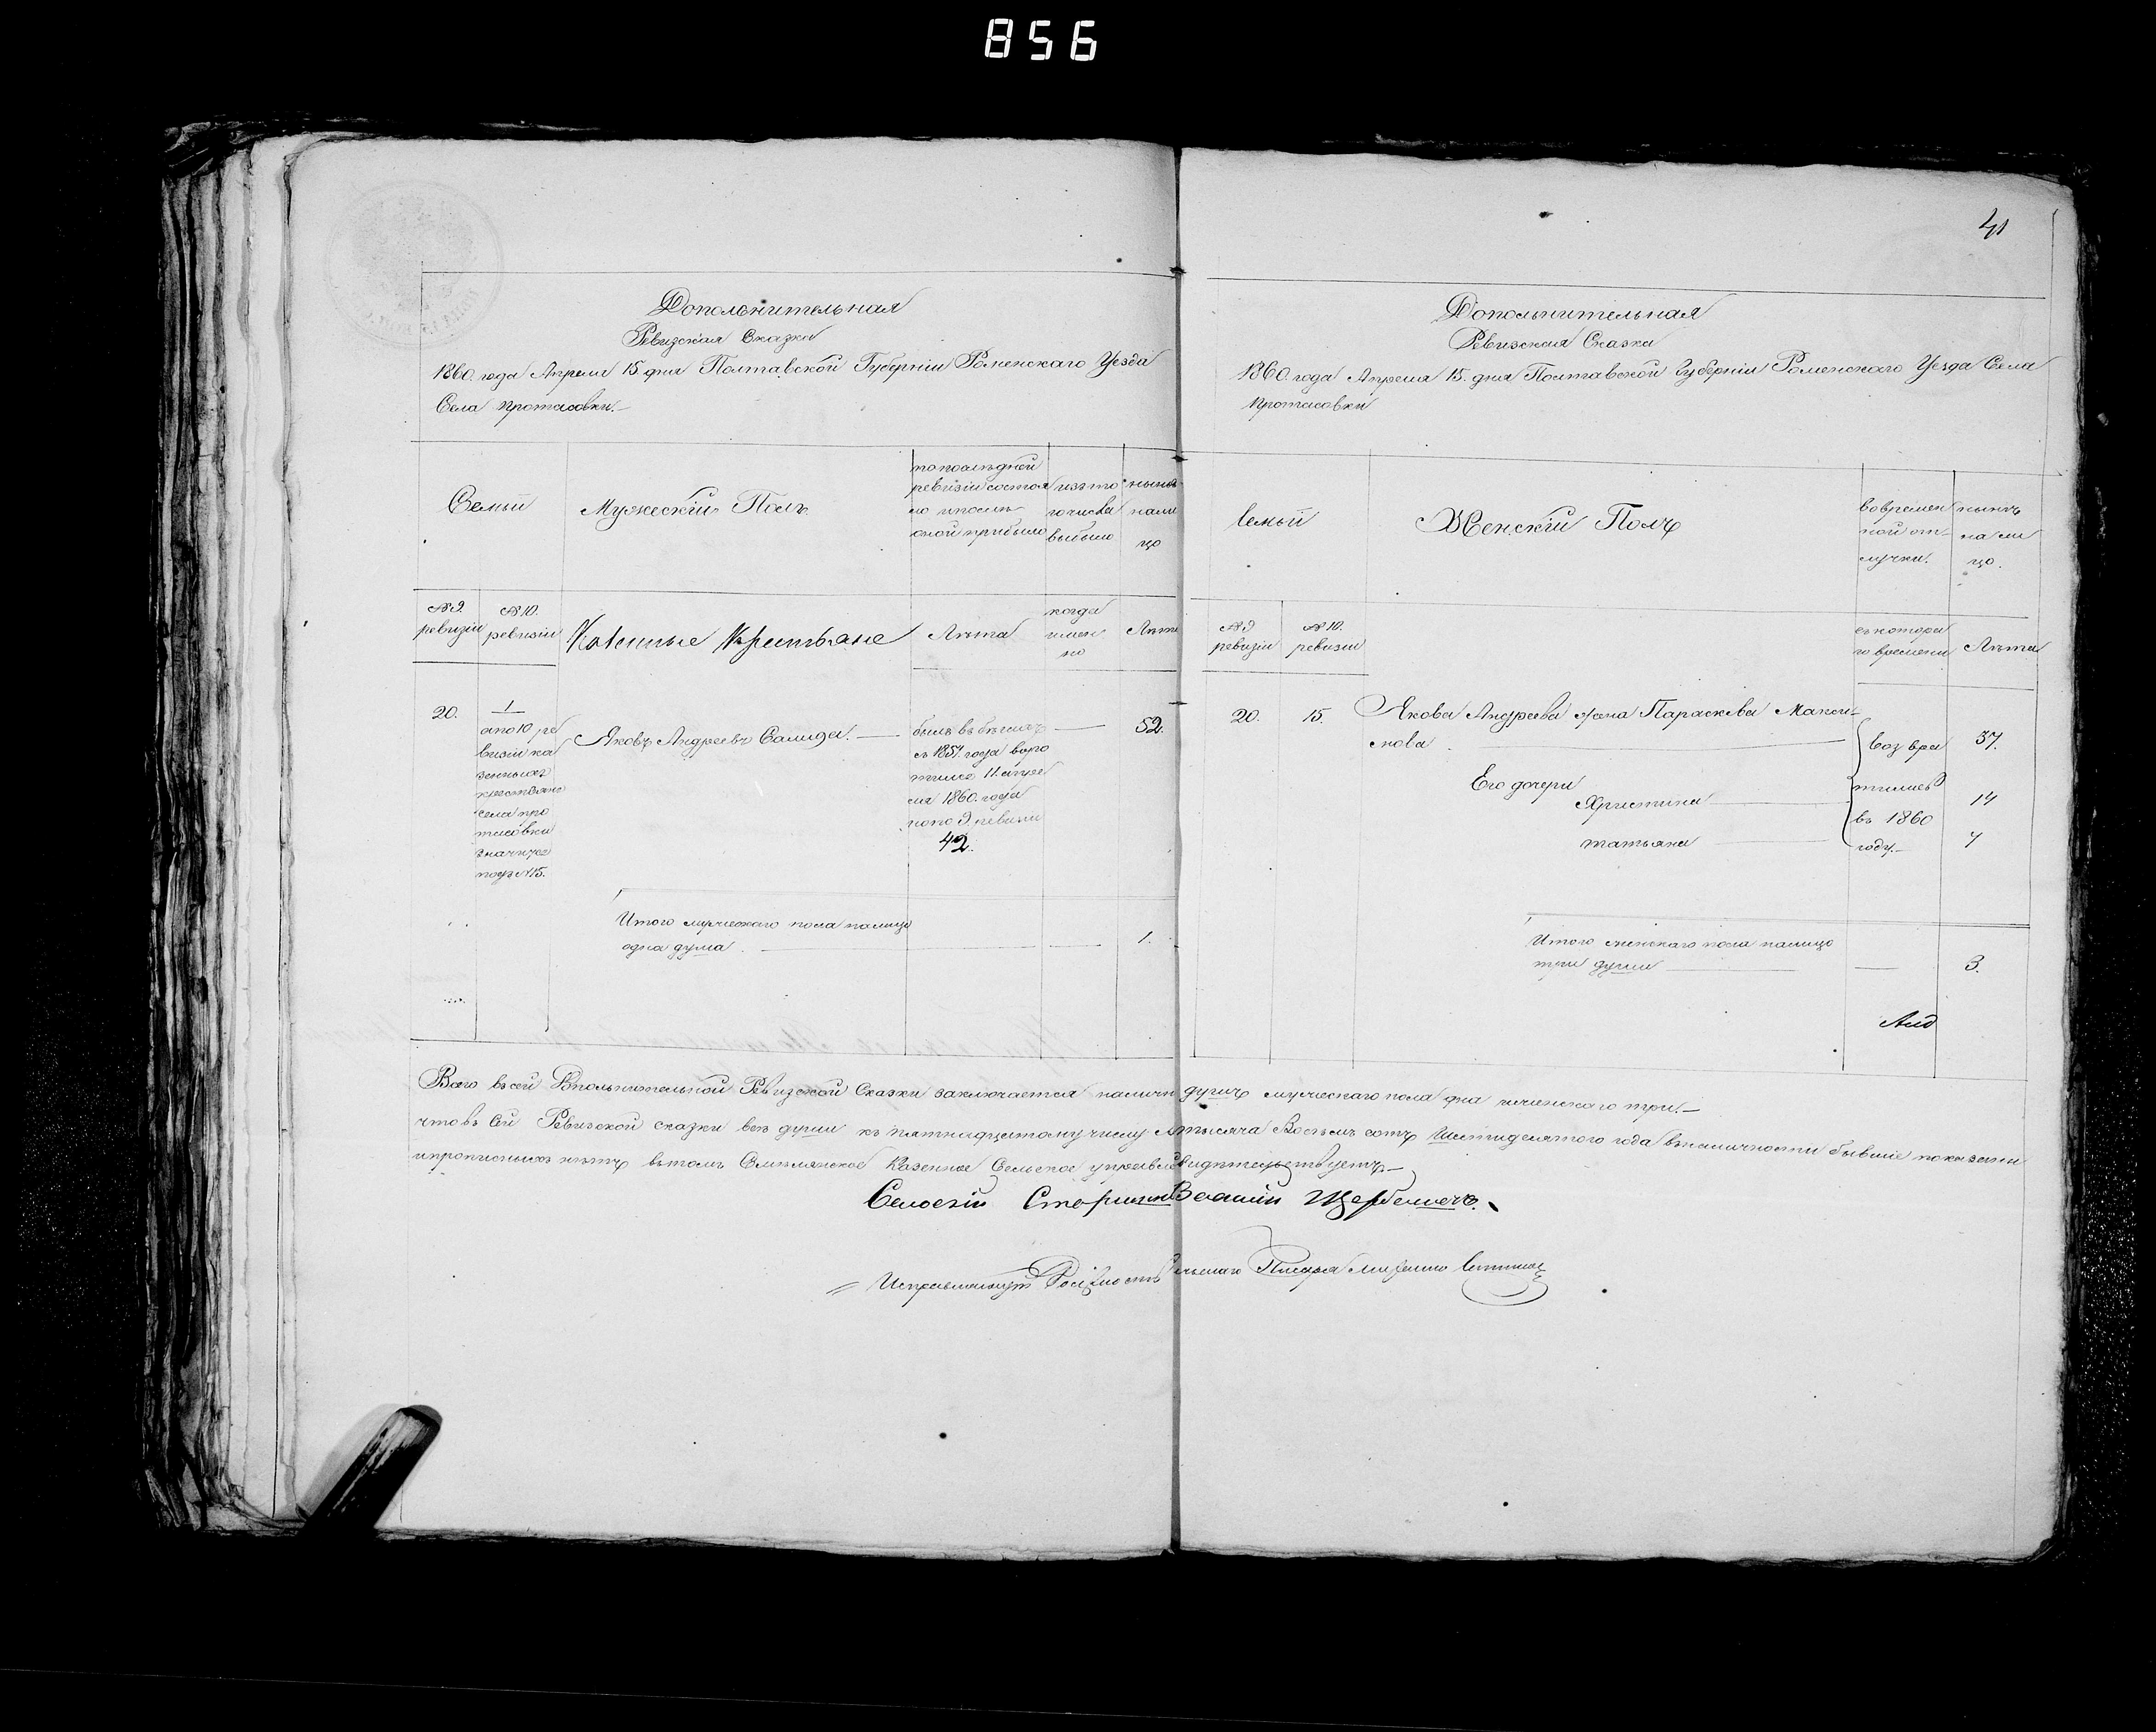 856
41
Дополнительная
Ревизская Сказка
1860. года Апреля 15. дня Полтавской Губерніи Роменскаго Уезда
Села Протасовки.
Семьи
Мужескій Полъ
по последней
ревизіи состоя
ло и после
оной прибыло
изъ то
го числа
выбыло
ныне
нали
цо
№ 9.
ревизіи
№ 10.
ревизіи
Казенные Крестьяне
Лѣта
когда
имен
но
Лѣта
20.
1
а по 10 ре
визіи ка
зенныхъ
крестьянъ
села про
тасовки
значится
подъ №15.
Яковъ Андреевъ Самида.
былъ въ бегахъ
съ 1857. года воро
тился 11. апре
ля 1860. года
по 9 ревизіи
42.
52.
Итого мужескаго пола налицо
одна душа.
1.
Дополнительная
Ревизская Сказка
1860. года Апреля 15. дня Полтавской Губерніи Роменскаго Уезда Села
Протасовки
Семьи
Женскій Полъ
во времен
ной от-
лучки.
нынѣ
на ли
цо.
№ 9
ревизіи
№ 10.
ревизіи
съ котора
го времени
Лѣта
20.
15.
Якова Андреева жена Параскева Макси-
мова
Его дочери
Христина
татьяна
возвра
тились
въ 1860
году.
37.
14
7
Итого женскаго пола налицо
три души
3.
Всего въ сей Дополнительной Ревизской Сказки заключается налични душъ мужескаго пола одна и женскаго три.-
что въ сей Ревизской сказки все души къ пятнадцатому числу тысяча Восемь сотъ Шестидесятого года въ наличности бывшіе показаны
и прописныхъ нетъ въ томъ Смелянское Казенное Сельское управле свидетельствуетъ
Сельскій Старшина Василій Щербаченъ.
Исправляющій Должность Сельскаго Писаря